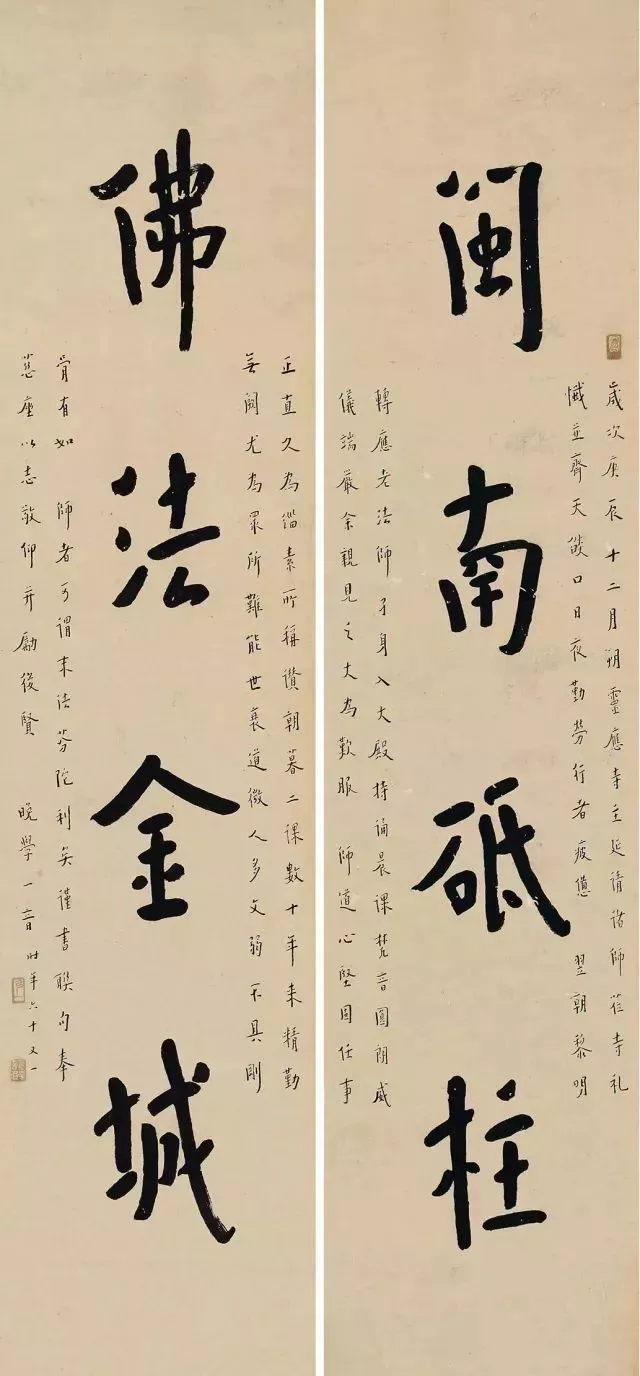 閩南砥柱
歲次庚辰十二月朔靈應寺主延請諸師莅寺礼
懺並齊天燄口日夜勤勞行者疲憊 翌朝黎明
轉應老法師孑身入大殿持誦晨課梵音圓朗威
儀端嚴余親見之大為歎服 師道心堅固任事
佛法金城
正直久為緇素所稱讚朝暮二課數十年来精勤
無闕尤為眾所難能世衰道微人多文弱不具剛
骨有如 師者可謂末法芬陀利矣謹書聯句奉
慈座以志敬仰并勵後賢 晚學一音時年六十又一